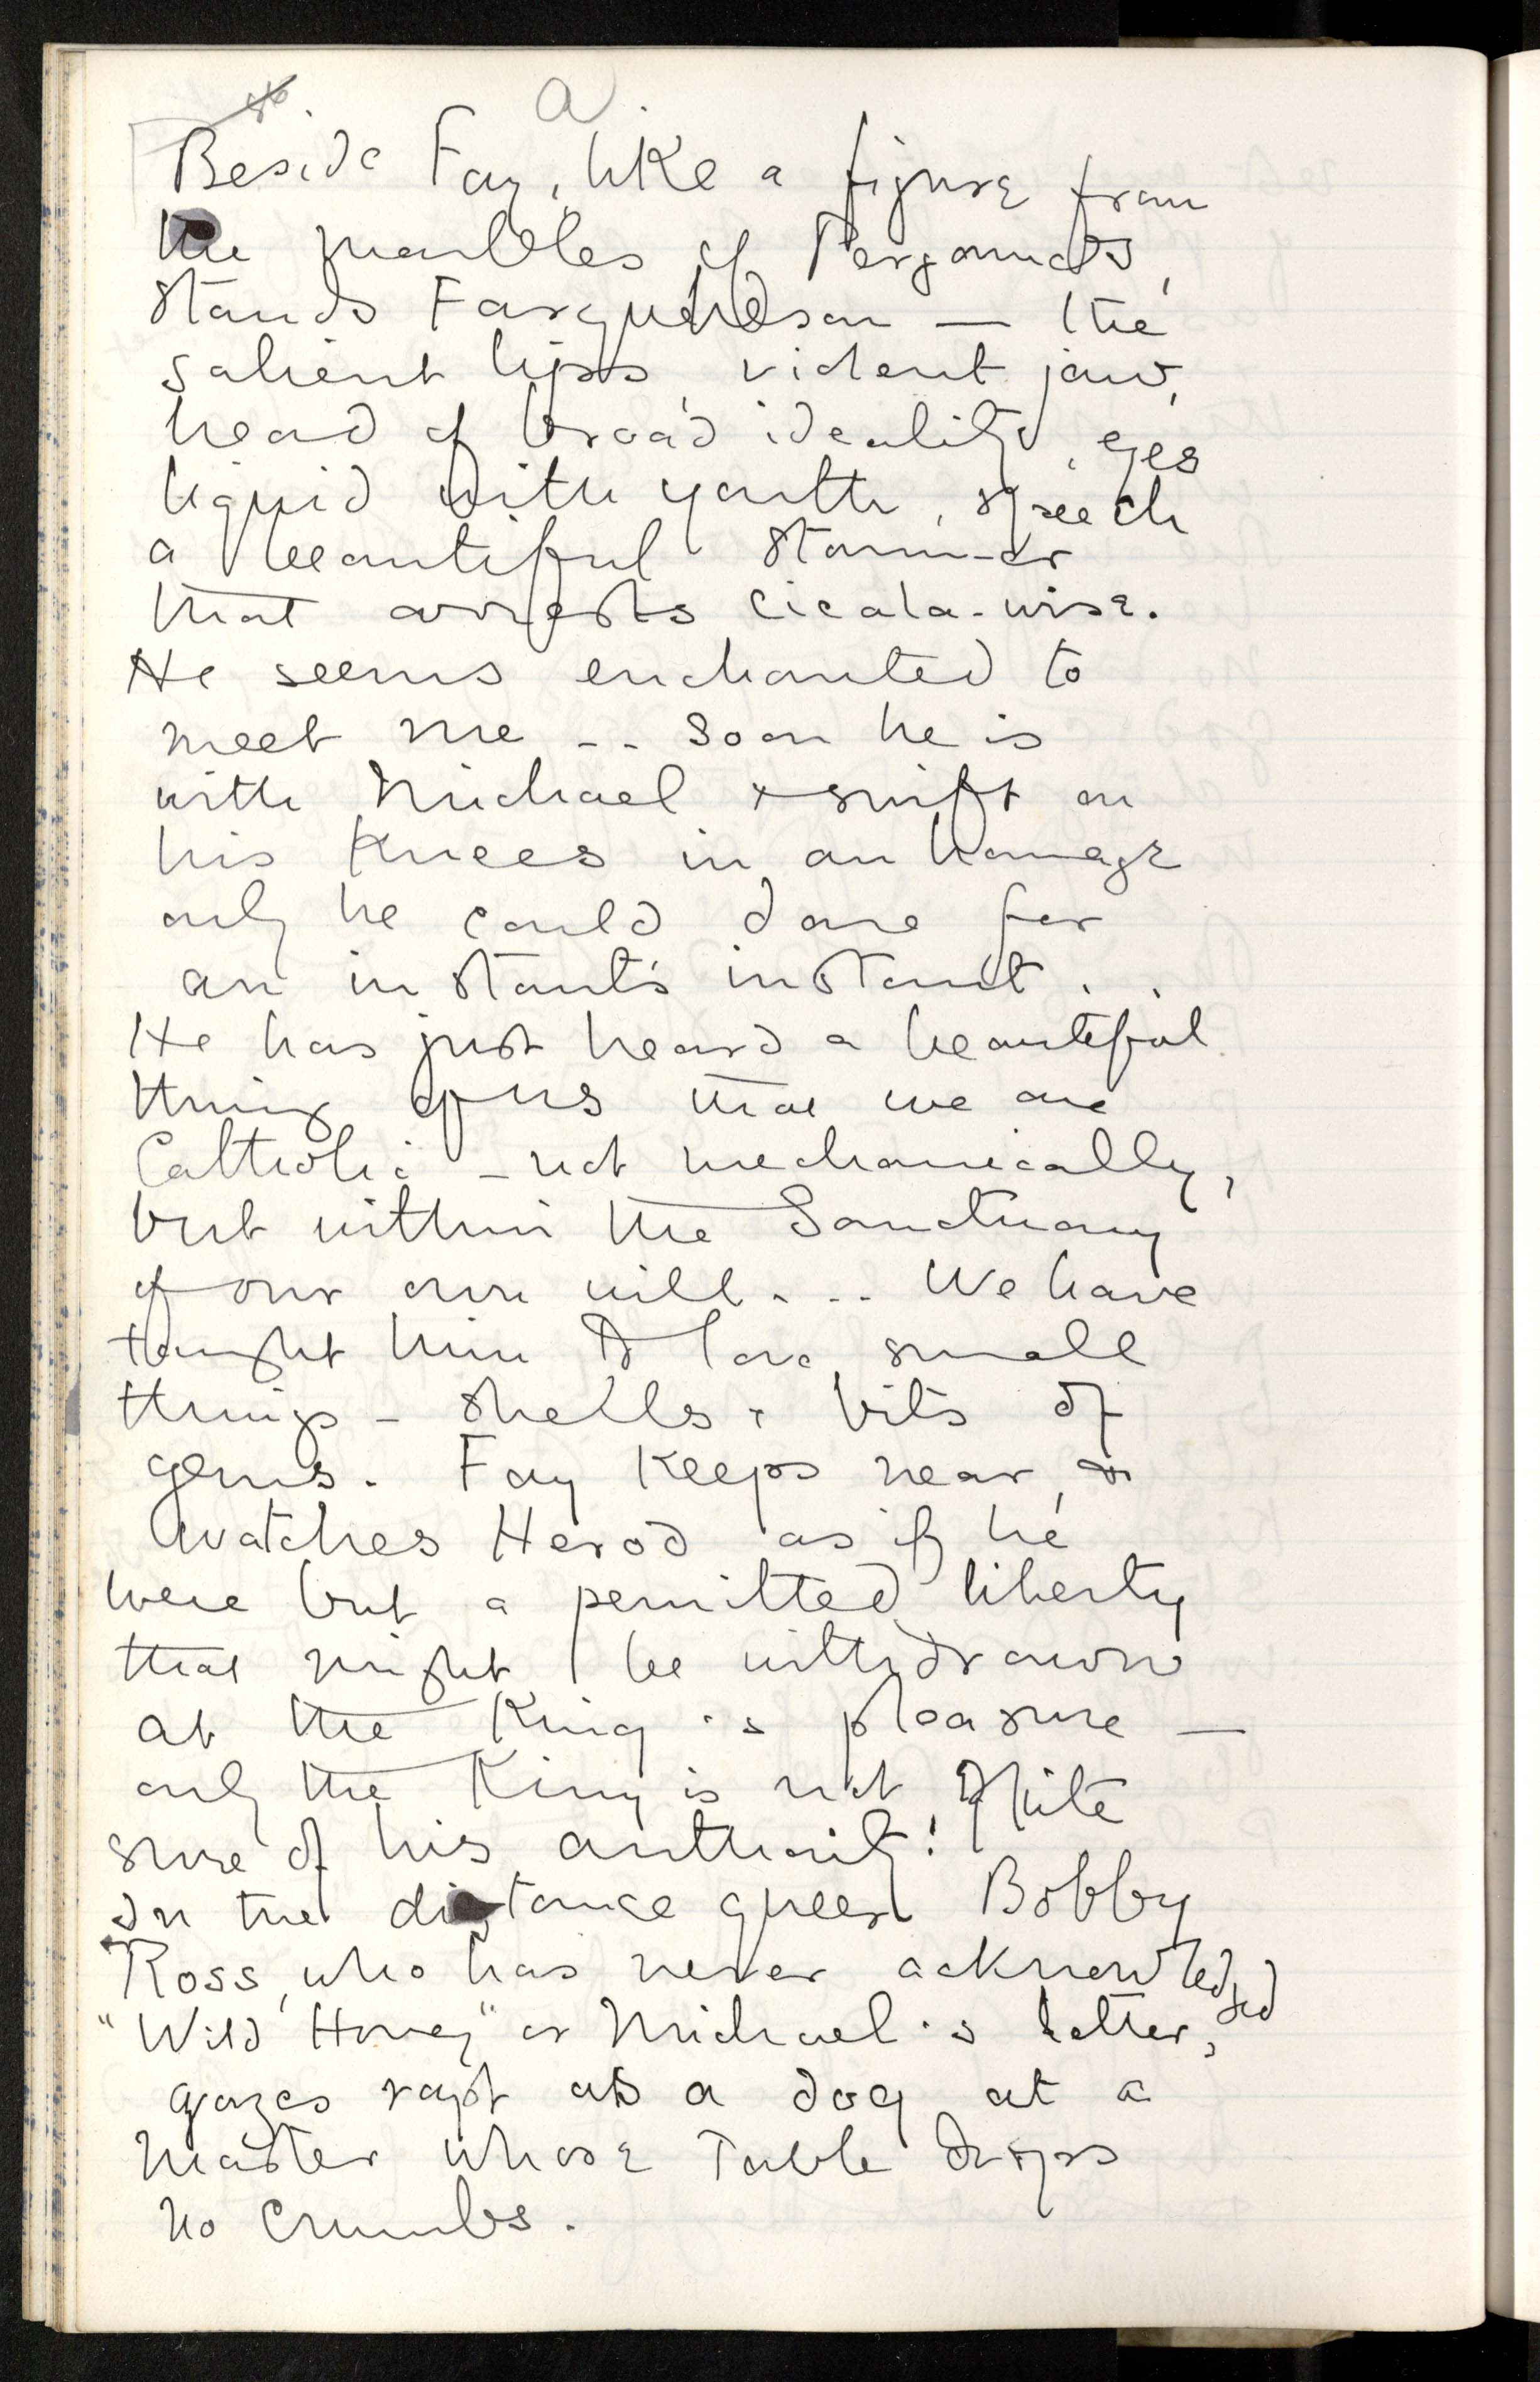 a
Beside Fay, like a figure from
the marbles of Pergamos,
stands Farquharson — the
salient lips, violent jaw,
head of broad ideality, eyes
liquid with youth, speech
a beautiful stammer
that arrests cicala-wise.
He seems enchanted to
meet me -- soon he is
with Michael & swift on
his knees in an homage
only he could dare for
an instant's instant . .
He has just heard a beautiful
thing of us that we are
Catholic - not mechanically,
but within the Sanctuary
of our own will. . . We have
taught him to love small
things - shells & bits of
gems. Fay keeps near, &
watches Herod as if he
were but a permitted liberty
that might be withdrawn
at the King's pleasure —
only the King is not quite
sure of his authority!
In the distance queer Bobby
Ross, who has never acknowledged
"Wild Honey" or Michael's letter,
gazes rapt as a dog at a
master whose table drips
no crumbs.